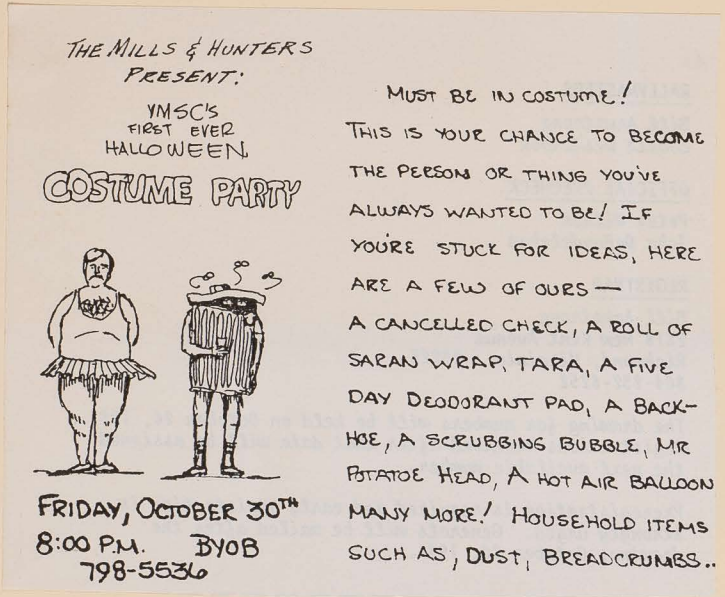 THE MILLS & HUNTERS
PRESENT:
YMSC'S
FIRST EVER
HALLOWEEN
COSTUME PARTY
FRIDAY, OCTOBER 30TH
8:00 P.M. BYOB
798-5536
MUST BE IN COSTUME!
THIS IS YOUR CHANCE TO BECOME
THE PERSON OR THING YOU'VE
ALWAYS WANTED TO BE! IF
YOU'RE STUCK FOR IDEAS, HERE
ARE A FEW OF OURS —
A CANCELLED CHECK, A ROLL OF
SARAN WRAP, TARA, A FIVE
DAY DEODORANT PAD, A BACK-
HOE, A SCRUBBING BUBBLE, MR
POTATOE HEAD, A HOT AIR BALLOON
MANY MORE! HOUSEHOLD ITEMS
SUCH AS, DUST, BREADCRUMBS..